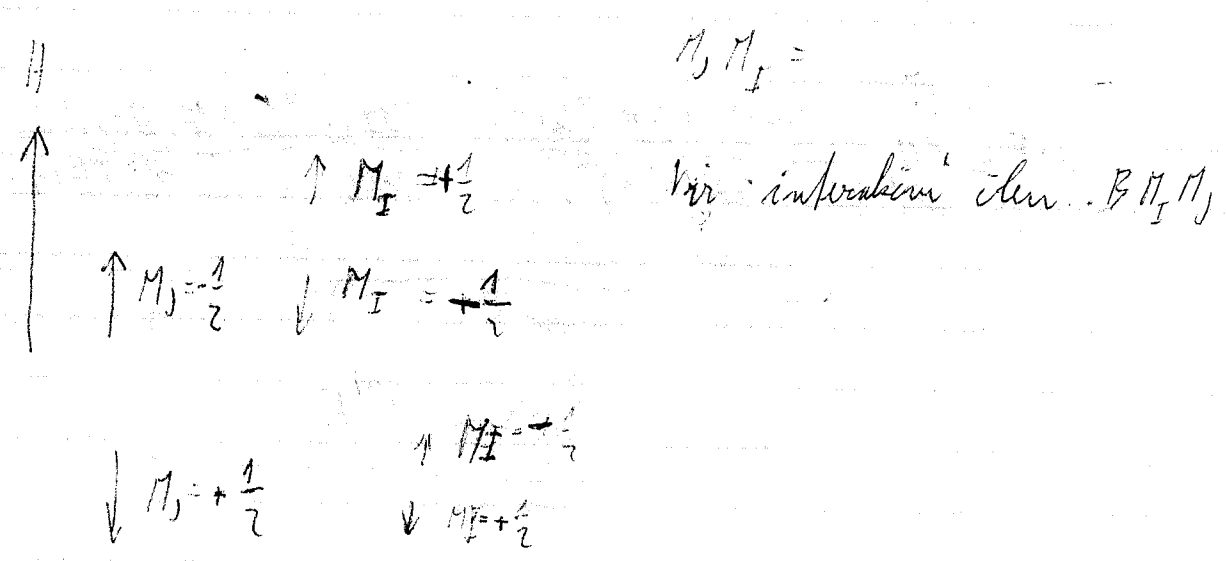 H
M_J M_I =
↑ M_I = +1/2
interakční člen . B M_I M_J
↑ M_J = -1/2 ↓ M_I = +1/2
↑ M_I =
↓ M_J = + 1/2
↓ M_I = + 1/2